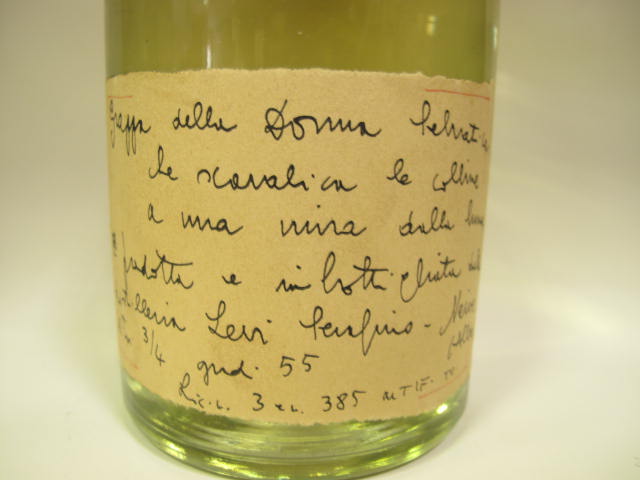 Grappa della Donna Selvatica
che scavalica le colline
a una mira dalla luna
è prodotta e imbottigliata dalla
distilleria Levi Serafino - Neive
3/4 grad. 55
Lic. n. 3 385 UTIF